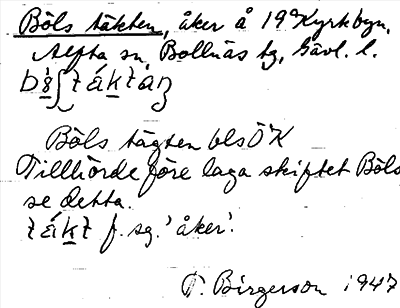 Böls täkten, åker å 19ª Kyrkbyn,
Alfta sn, Bollnäs tg, Gävl. l.
Böls tägten bls ÖK
Tillhörde före laga skiftet Böls
se detta.
f. sg. 'åker'.
T. Birgerson 1947